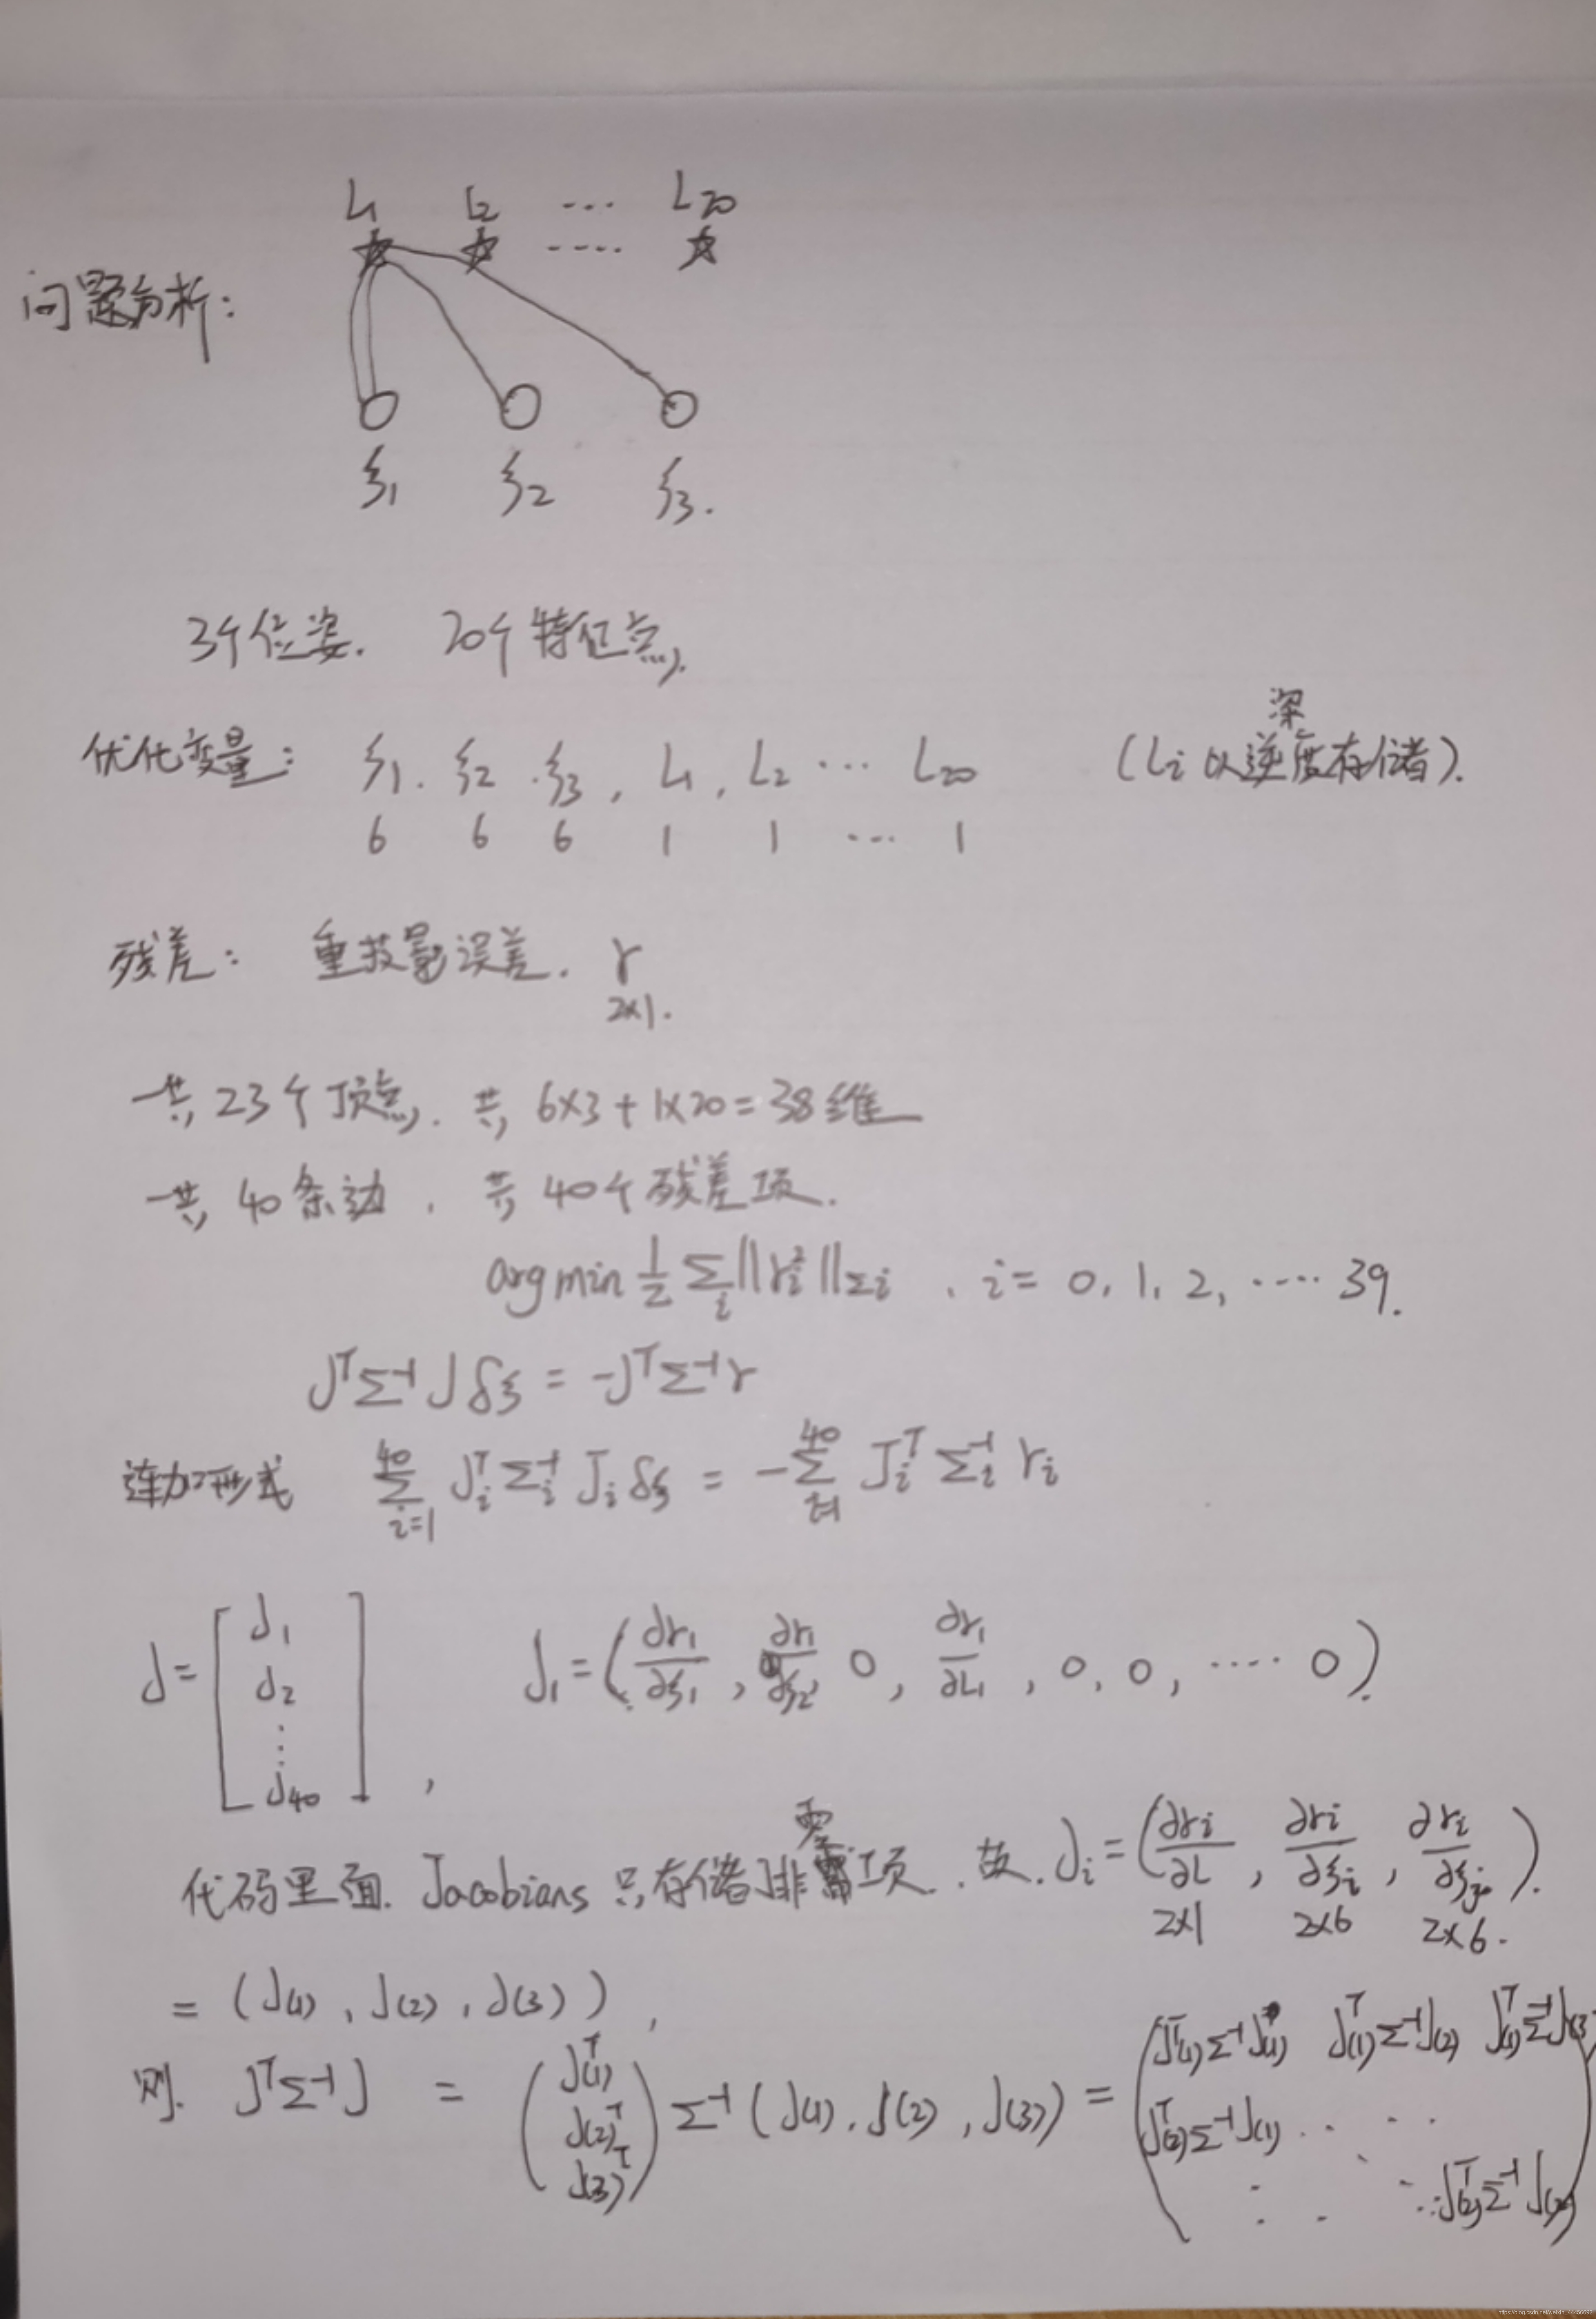 L1 L2 ... L20
问题分析:
ξ1 ξ2 ξ3.
3个位姿. 20个特征点.
优化变量: ξ1. ξ2. ξ3, L1, L2 ... L20 (Li 以逆深度存储).
6 6 6 1 1 ... 1
残差: 重投影误差. r
2×1.
一共 23个顶点. 共 6×3+1×20=38维
一共 40条边, 共 40个残差项.
argmin 1/2 Σ_i ||r_i²||_Σi , i = 0, 1, 2, .... 39.
J^T Σ^-1 J δξ = -J^T Σ^-1 r
连加形式 Σ_{i=1}^{40} J_i^T Σ_i^-1 J_i δξ = -Σ_{i=1}^{40} J_i^T Σ_i^-1 r_i
J = [J1 J2 ⋮ J40], J1 = (∂r1/∂ξ1, ∂r1/∂ξ2, 0, ∂r1/∂L1, 0, 0, .... 0).
代码里面. Jacobians 只存储非零项. 故. Ji = (∂ri/∂L, ∂ri/∂ξi, ∂ri/∂ξj).
2×1 2×6 2×6.
= (J(1), J(2), J(3)),
则. J^T Σ^-1 J = (J(1)^T J(2)^T J(3)^T) Σ^-1 (J(1), J(2), J(3)) = (J(1)^T Σ^-1 J(1) J(1)^T Σ^-1 J(2) J(1)^T Σ^-1 J(3)
J(2)^T Σ^-1 J(1) ...